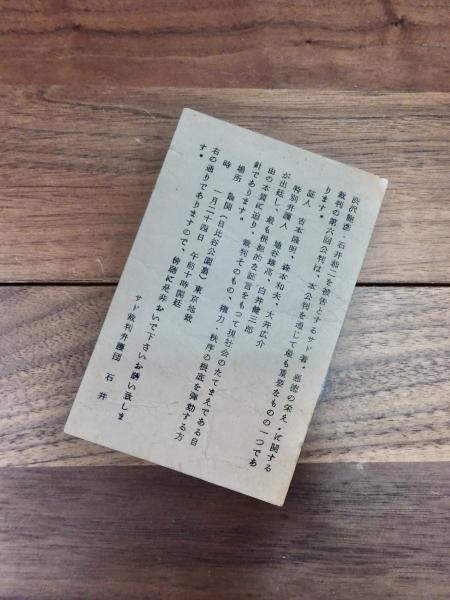 渋沢龍彦・石井恭二を被告とするサド著・悪徳の栄え・に関する
裁判の第六回公判は、本公判を通じて最も重要なものの一つであ
ります。
証人 吉本隆明、森本和夫、大井広介
特別弁護人 埴谷雄高、白井健三郎
が出廷し、最も根源的な証言をもつて現社会のたてまえである自
由の本質に迫り、裁判そのもの、権力・秩序の根底を弾劾する方
針であります。
場所 (日比谷公園裏)東京地裁
時 一月二十四日 午前十時開廷
右の通りでありますので、傍聴に是非おいで下さいお願い致しま
す。
サド裁判弁護団 石井